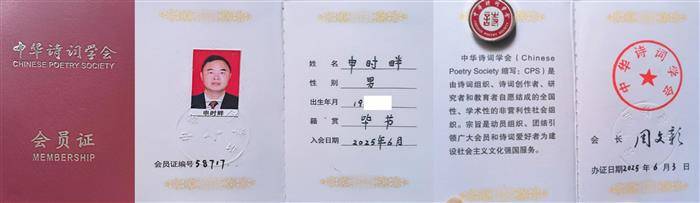 中华诗词学会
CHINESE POETRY SOCIETY
会员证
MEMBERSHIP
申时畔
会员证编号 58717
姓名 申时畔
性别 男
出生年月 19
籍贯 毕节
入会日期 2025年6月
中华诗词学会（Chinese
Poetry Society 缩写：CPS）是
由诗词组织、诗词创作者、研
究者和教育者自愿结成的全国
性、学术性的非营利性社会组
织。宗旨是动员组织、团结引
领广大会员和诗词爱好者为建
设社会主义文化强国服务。
中华诗词学会
会长 周文彰
办证日期 2025年6月3日